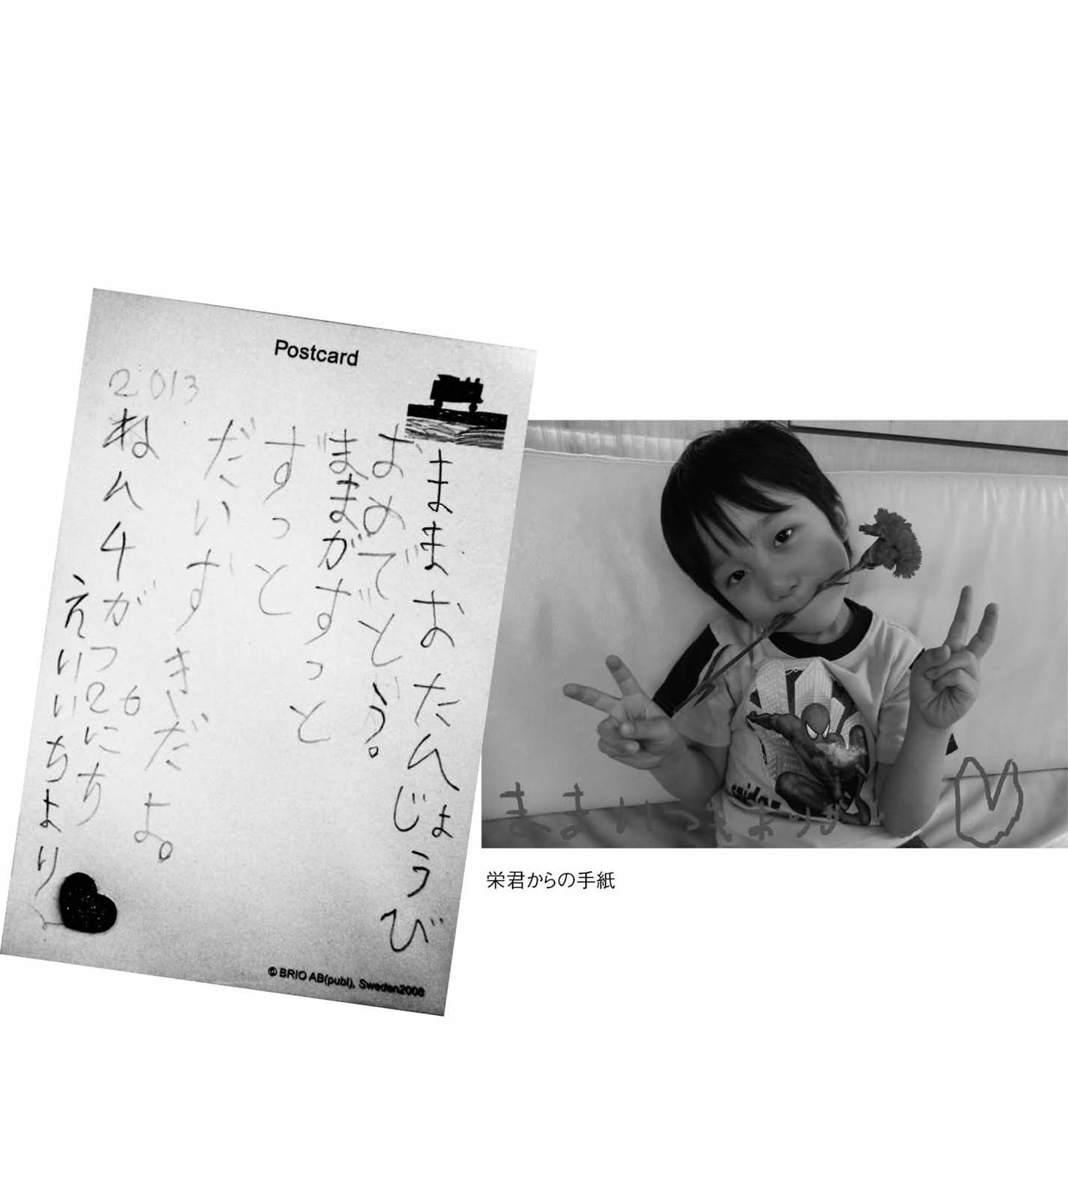 Postcard
ままおたんじょうび
おめでとう。
ままがずっと
すっと
だいすきだよ。
2013
ねん4がつ26にち
えいいちより
© BRIO AB(publ), Sweden2008
ままいつ
栄君からの手紙